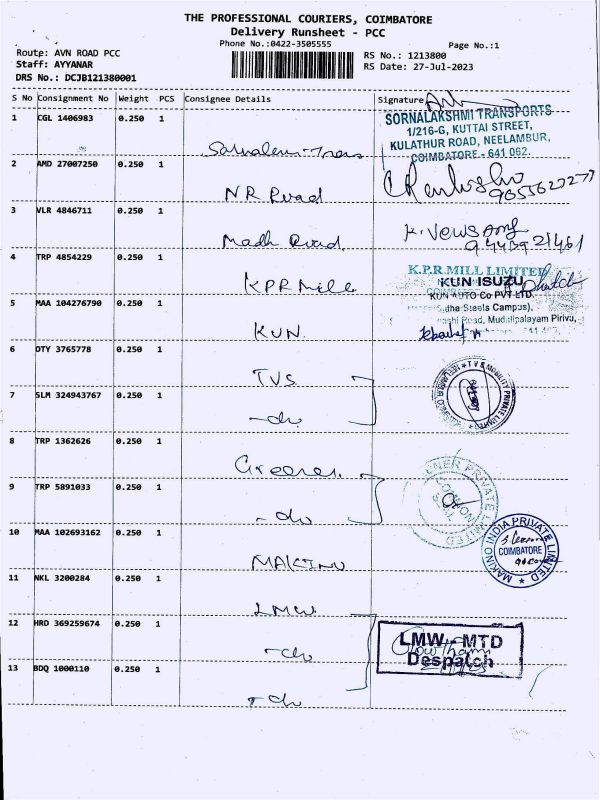 THE PROFESSIONAL COURIERS, COIMBATORE
Delivery Runsheet - PCC
Phone No.:0422-3505555
Page No.:1
Route: AVN ROAD PCC
RS No.: 1213800
Staff: AYYANAR
RS Date: 27-Jul-2023
DRS No.: DCJB121380001
S No Consignment No Weight PCS Consignee Details Signature
1 CGL 1406983 0.250 1
SORNALAKSHMI TRANSPORTS
1/216-G, KUTTAI STREET,
KULATHUR ROAD, NEELAMBUR,
COIMBATORE - 641 062.
2 AMD 27007250 0.250 1
NR Road
3 VLR 4846711 0.250 1
Madh Road
4 TRP 4854229 0.250 1
KPR Mill
K.P.R.MILL LIMITED
KUN ISUZU
KUN AUTO Co PVT LTD.
Steels Campus),
Road, Mudalipalayam Pirivu,
5 MAA 104276790 0.250 1
KUN
6 DTY 3765778 0.250 1
TVS
7 SLM 324943767 0.250 1
-do
MOBILITY PRIVATE LIMITED
8 TRP 1362626 0.250 1
9 TRP 5891033 0.250 1
-do
PRIVATE LIMITED
COMMON SEAL
10 MAA 102693162 0.250 1
MAKINO
MAKINO INDIA PRIVATE LIMITED
COIMBATORE
11 NKL 3200284 0.250 1
LMW
12 HRD 369259674 0.250 1
-do
LMW - MTD
Despatch
13 BDQ 1000110 0.250 1
-do